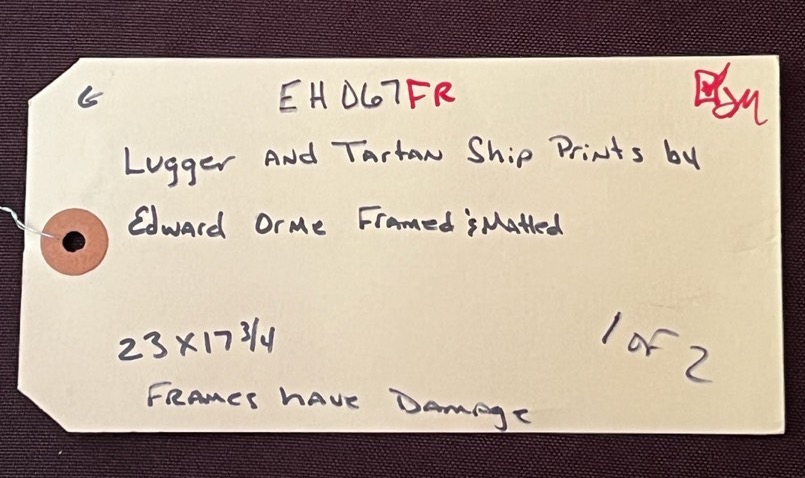 G EH067FR
Lugger AND Tartan Ship Prints by
Edward Orme Framed & Matted
23x17 3/4
1 of 2
FRAMES HAVE DAMAGE